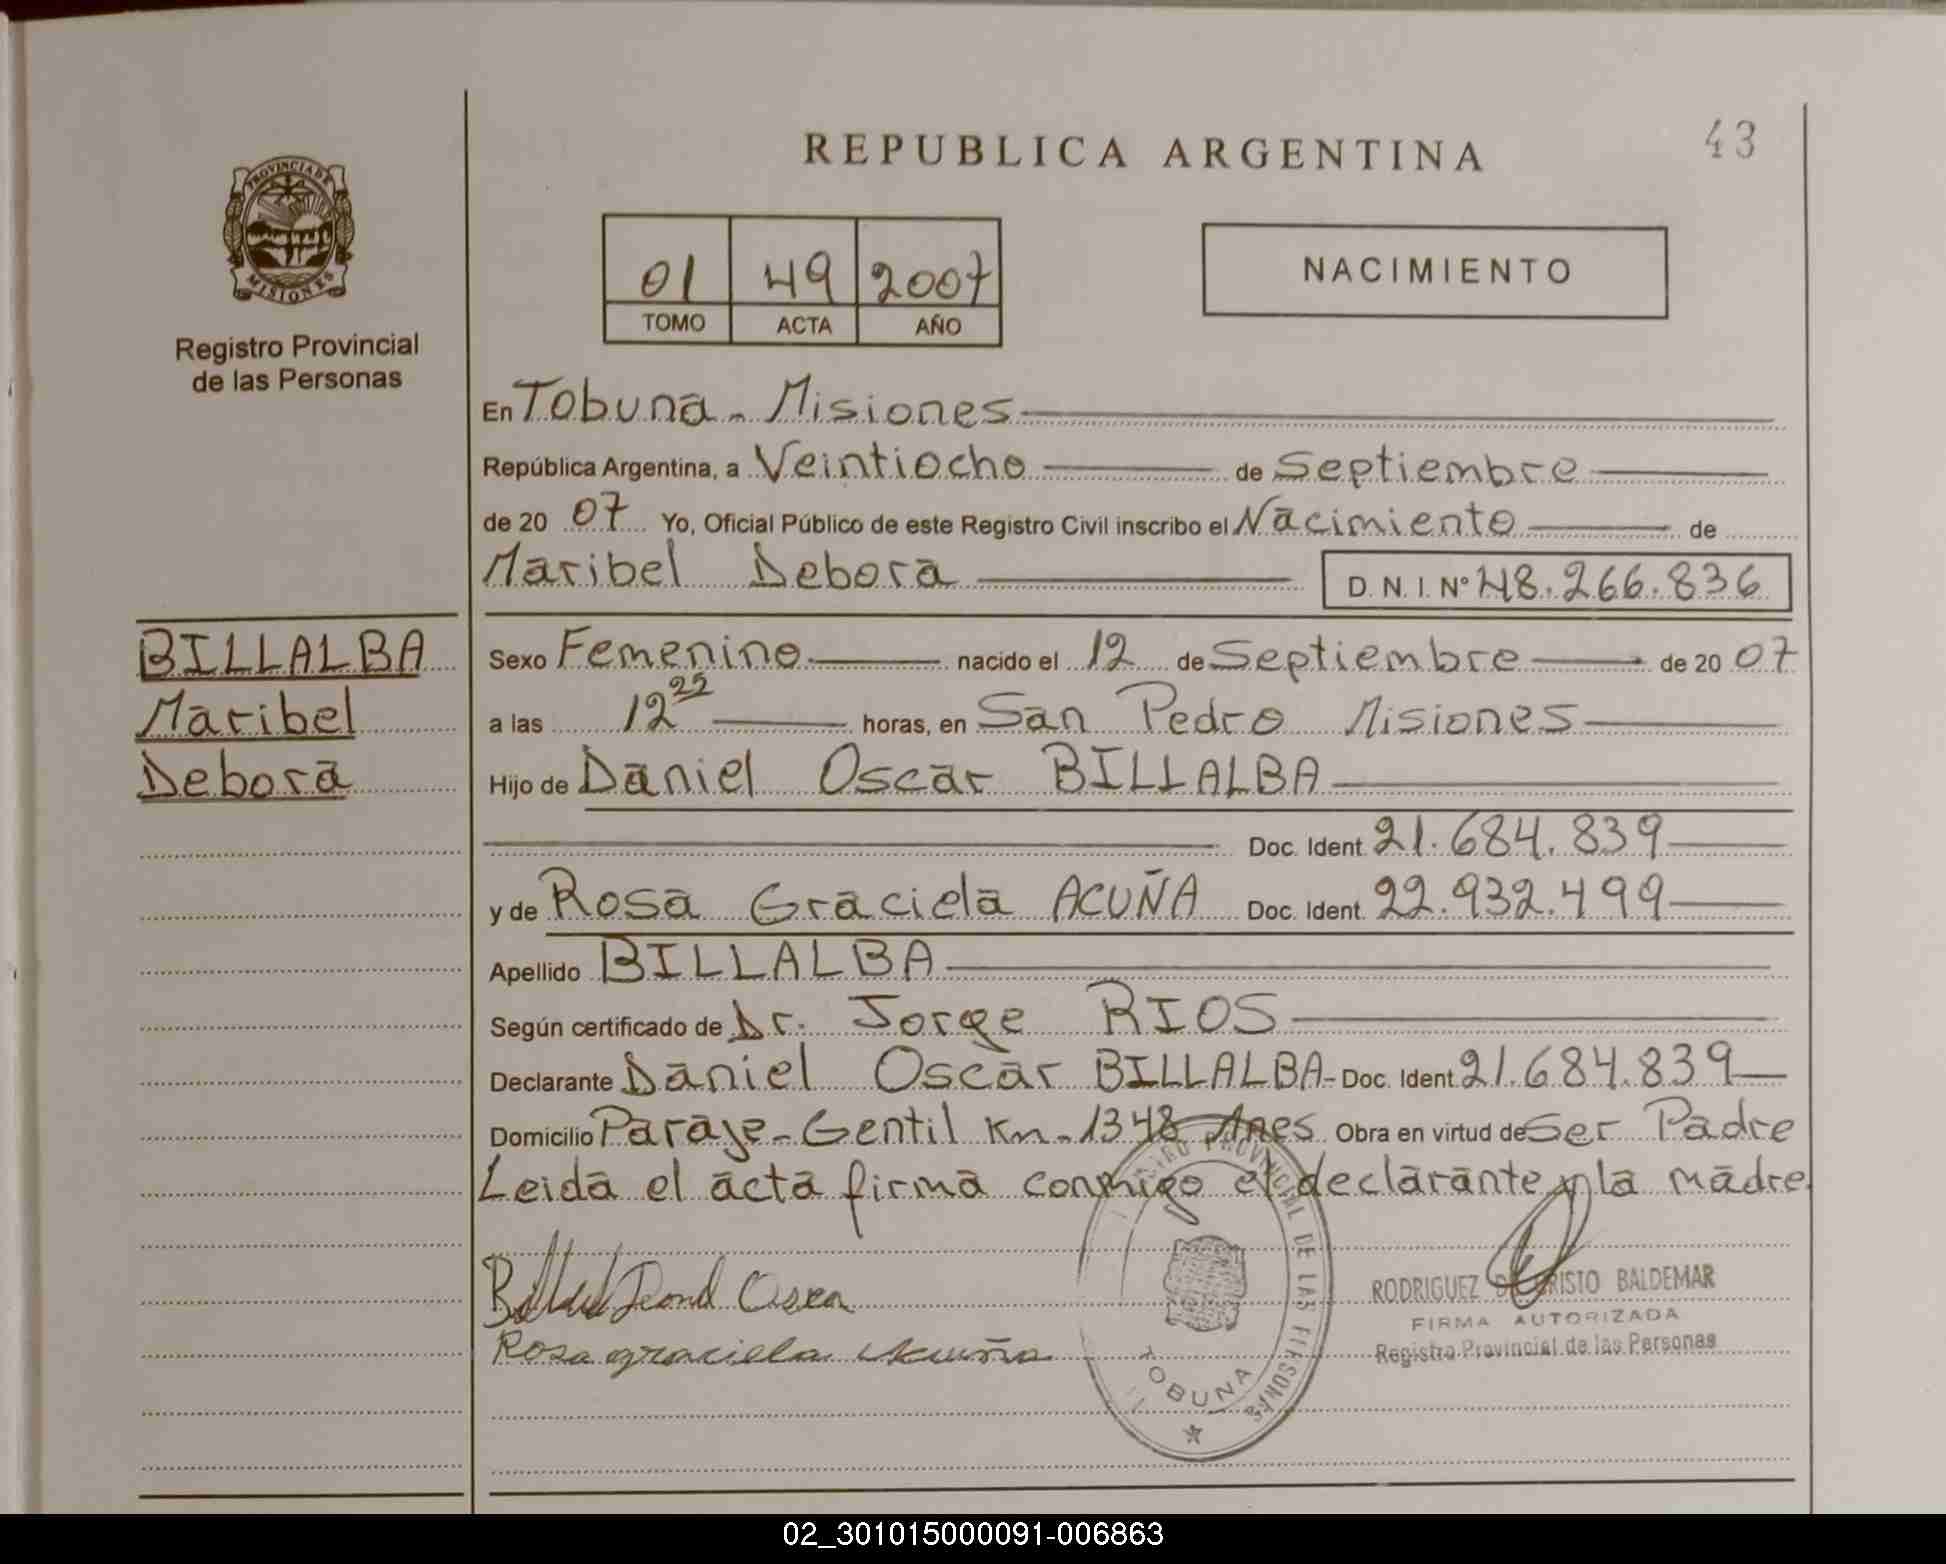 REPUBLICA ARGENTINA
43
PROVINCIA DE
MISIONES
Registro Provincial
de las Personas
01 49 2007
TOMO ACTA AÑO
NACIMIENTO
En Tobuna - Misiones
República Argentina, a Veintiocho de Septiembre
de 20 07 Yo, Oficial Público de este Registro Civil inscribo el Nacimiento de
Maribel Debora D. N. I. Nº 48.266.836
BILLALBA
Maribel
Debora
Sexo Femenino nacido el 12 de Septiembre de 20 07
a las 12 25 horas, en San Pedro Misiones
Hijo de Daniel Oscar BILLALBA
Doc. Ident. 21.684.839
y de Rosa Graciela ACUÑA Doc. Ident. 22.932.499
Apellido BILLALBA
Según certificado de Dr. Jorge RIOS
Declarante Daniel Oscar BILLALBA - Doc. Ident. 21.684.839
Domicilio Paraje - Gentil Km - 1348 Obra en virtud de Ser Padre
Leida el acta firma conmigo el declarante y la madre
Oscar
Rosa graciela Acuña
REGISTRO PROVINCIAL DE LAS PERSONAS
TOBUNA
RODRIGUEZ DE CRISTO BALDEMAR
FIRMA AUTORIZADA
Registro Provincial de las Personas
02_301015000091-006863